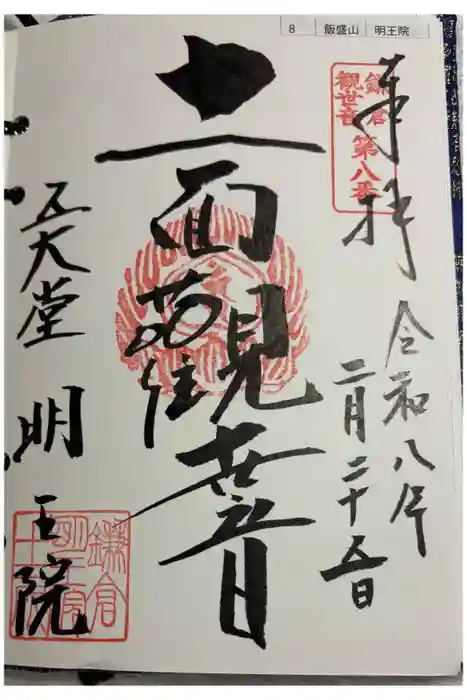 8 飯盛山 明王院
奉拝
令和八年
二月二十五日
鎌倉
觀世音
第八番
十一面觀世音
五大堂
明王院
鎌倉
明王院